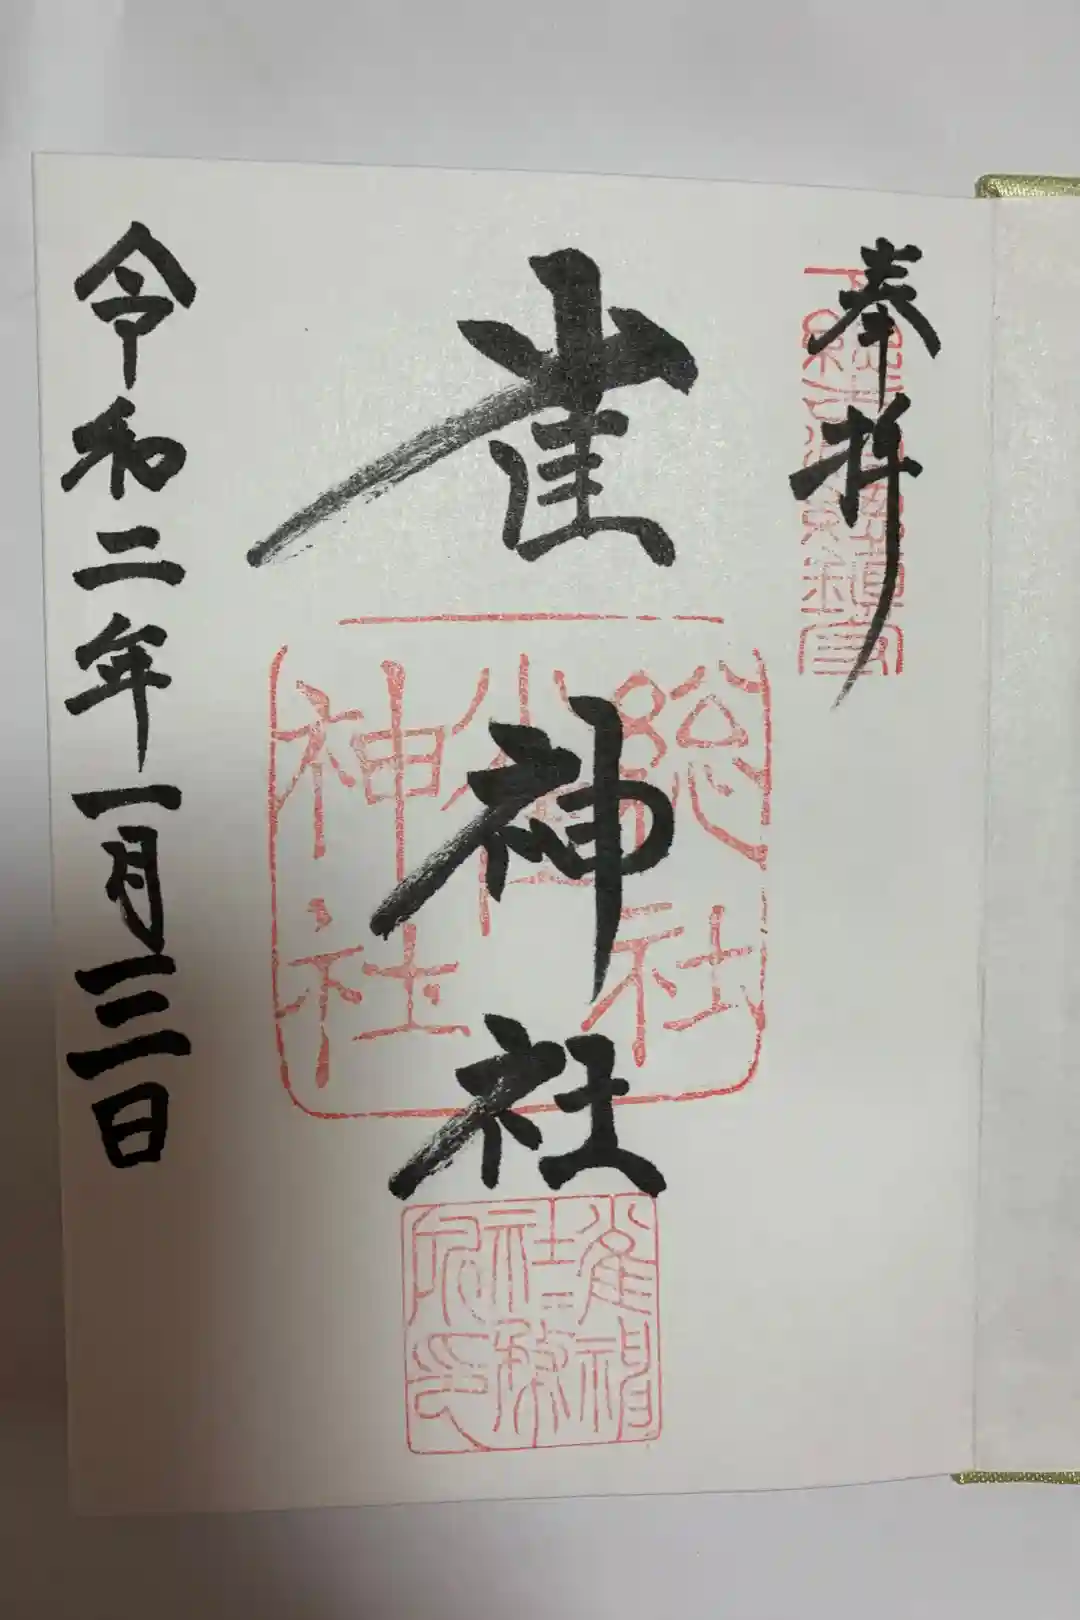 奉拝
雀神社
令和二年一月三日
総社
雀
神社
雀神
社務
所印